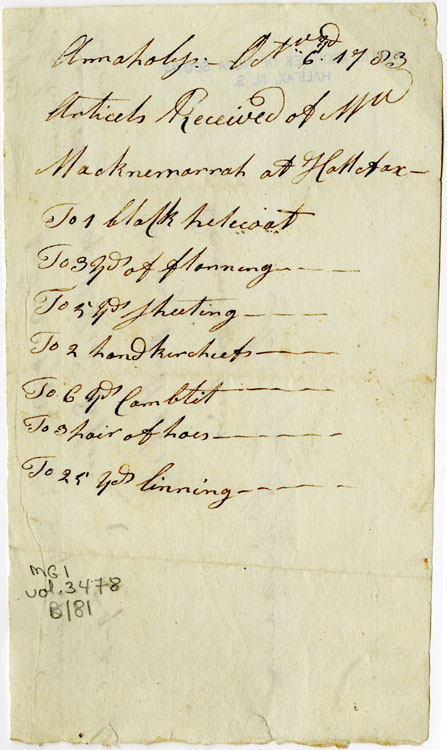 Annapolys - Oct 6. 1783
Articels Received of Mr
Macknemarrah at Hallefax -
To 1 blak peticoat
To 3 yds of flanning - - - -
To 5 yds sheeting - - - -
To 2 handkircheefs - - - -
To 6 yds Camblit - - - -
To 3 pair of hoes - - - -
To 25 yds linning - - - -
MG1
vol. 3478
B/81
HALIFAX, N. S.